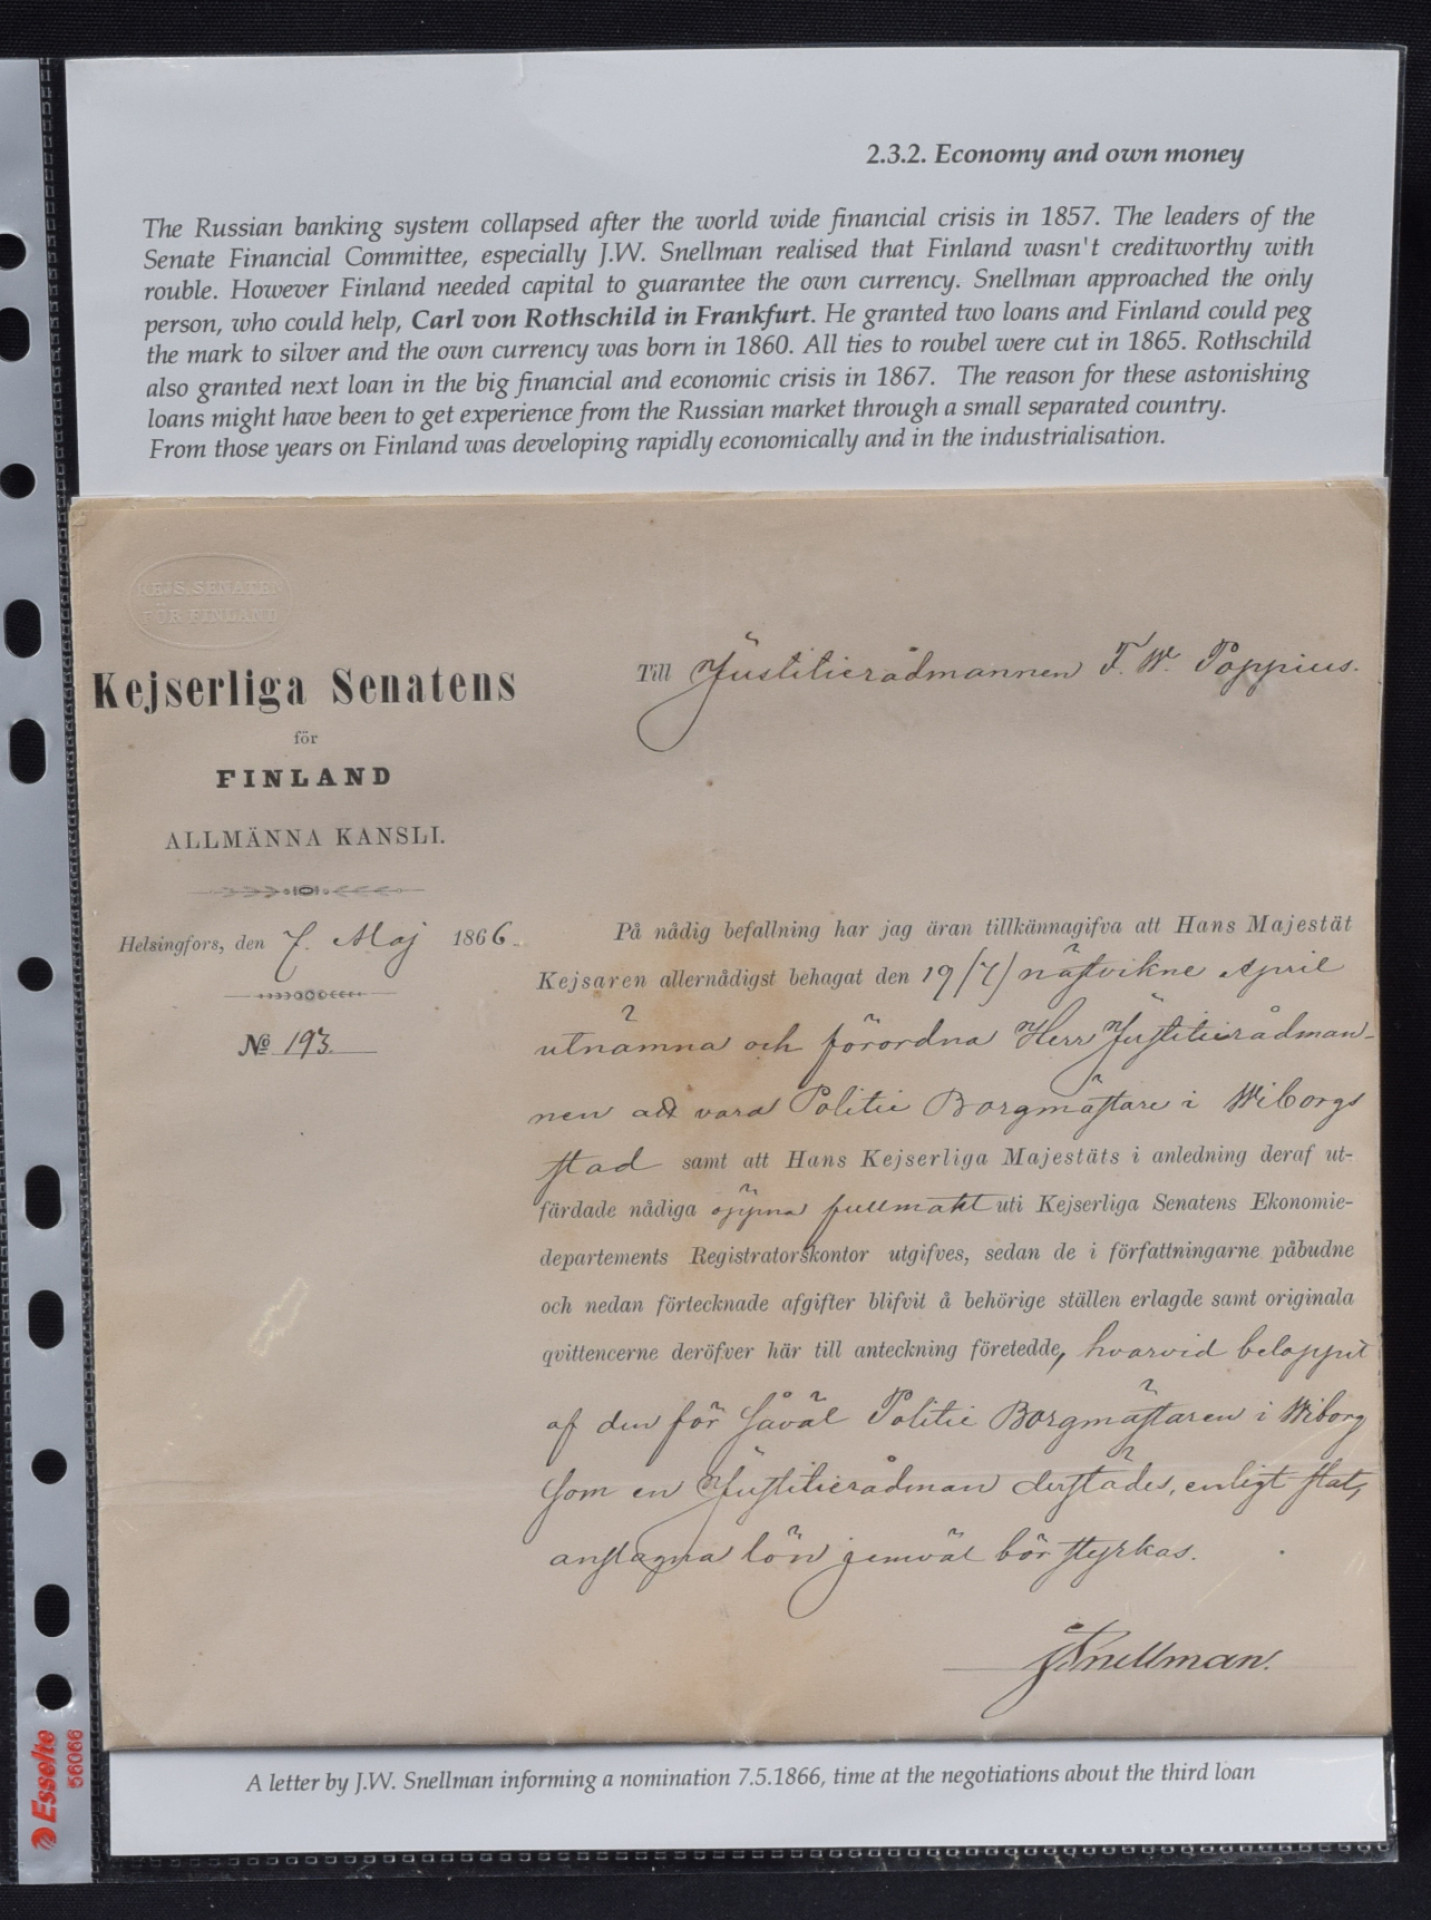 2.3.2. Economy and own money
The Russian banking system collapsed after the world wide financial crisis in 1857. The leaders of the
Senate Financial Committee, especially J.W. Snellman realised that Finland wasn't creditworthy with
rouble. However Finland needed capital to guarantee the own currency. Snellman approached the only
person, who could help, Carl von Rothschild in Frankfurt. He granted two loans and Finland could peg
the mark to silver and the own currency was born in 1860. All ties to roubel were cut in 1865. Rothschild
also granted next loan in the big financial and economic crisis in 1867. The reason for these astonishing
loans might have been to get experience from the Russian market through a small separated country.
From those years on Finland was developing rapidly economically and in the industrialisation.
KEJS. SENATEN
FÖR FINLAND
Kejserliga Senatens
för
FINLAND
ALLMÄNNA KANSLI.
Helsingfors, den 7. Maj 1866.
No 193.
Till Justitierådmannen F. W. Poppius.
På nådig befallning har jag äran tillkännagifva att Hans Majestät
Kejsaren allernådigst behagat den 19/(7) nästvikne April
utnämna och förordna Herr Justitierådman-
nen att vara Politie Borgmästare i Wiborgs
stad samt att Hans Kejserliga Majestäts i anledning deraf ut-
färdade nådiga öppna fullmakt uti Kejserliga Senatens Ekonomie-
departements Registratorskontor utgifves, sedan de i författningarne påbudne
och nedan förtecknade afgifter blifvit å behörige ställen erlagde samt originala
qvittencerne deröfver här till anteckning företedde, hvarvid beloppet
af den för såväl Politie Borgmästaren i Wiborg
som en Justitierådman derstädes, enligt stat,
anslagna lön jemväl bör styrkas.
J Snellman.
A letter by J.W. Snellman informing a nomination 7.5.1866, time at the negotiations about the third loan
Esselte
56066